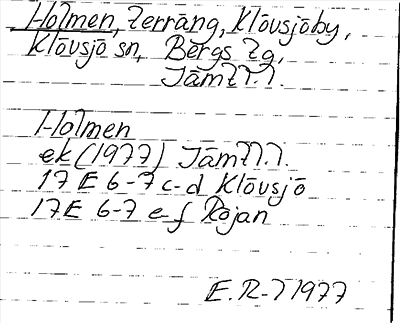 Holmen, terräng, Klövsjöby,
Klövsjö sn, Bergs tg,
Jämtl.
Holmen
ek (1977) Jämtl.
17 E 6-7 c-d Klövsjö
17E 6-7 e-f Röjan
E. R-1 1977